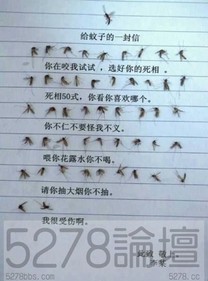 给蚊子的一封信
你在咬我试试，选好你的死相。
死相50式，你看你喜欢哪个。
你不仁不要怪我不义。
喂你花露水你不喝。
请你抽大烟你不抽。
我很受伤啊。
此致 敬上
5278論壇
5278bbs.com
5278.cc